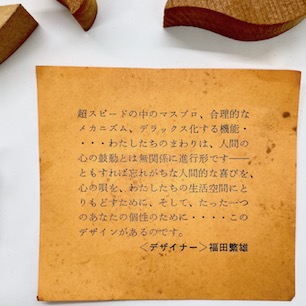 超スピードの中のマスプロ、合理的な
メカニズム、デラックス化する機能・
・・・わたしたちのまわりは、人間の
心の鼓動とは無関係に進行形です――
ともすれば忘れがちな人間的な喜びを、
心の唄を、わたしたちの生活空間にと
りもどすために、そして、たった一つ
のあなたの個性のために・・・・この
デザインがあるのです。
＜デザイナー＞福田繁雄